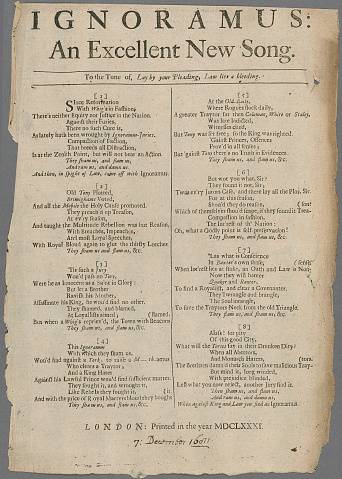 IGNORAMUS:
An Excellent New Song.
To the Tune of, Lay by your Pleading, Law lies a bleeding.
[1]
Since Reformation
With Whig's in Fashion,
There's neither Equity nor Justice in the Nation.
Against their Furies,
There no such Cure is,
As lately hath been wrought by Ignoramus-Juries.
Compaction of Faction,
That breeds all Distraction,
Is at the Zenith Point, but will not bear an Action.
They sham us, and flam us,
And ram us, and damn us,
And then, in spight of Law, come off with Ignoramus.
[2]
Old Tony Plotted,
Brimigham Voted,
And all the Mobile the Holy Cause promoted.
They preach'd up Treason,
At ev'ry season,
And taught the Multitude Rebellion was but Reason,
With Breaches, Impeaches,
And most Loyal Speeches,
With Royal Blood again to glut the thirsty Leeches.
They sham us, and flam us, &c.
[3]
'Tis such a Jury
Wou'd pass no Tory,
Were he as Innocent as a Saint in Glory:
But let a Brother
Ravish his Mother,
Assassinate his King, he wou'd find no other.
They shamed, and blamed,
At Loyalists aimed,
But when a Whig's repriev'd, the Town with Beacons flamed.
They sham us, and flam us, &c.
[4]
This Ignoramus
With which they sham us,
Wou'd find against a York, to raise a
Who clears a Traytor,
And a King Hater
Against his Lawful Prince wou'd find sufficient matter.
They sought it, and wrought it,
Like Rebels they fought it,
And with the price of Royal Martyrs blood they bought it.
They sham us, and flam us, &c.
[5]
At the Old-Baily,
Where Rogues flock daily,
A greater Traytor far than Coleman, White or Staley,
Was late Indicted,
Witnesses cited,
But Tony was set free, so the King was righted.
'Gainst Princes, Offences
Prov'd in all senses;
But 'gainst Tony there's no Truth in Evidences.
They sham us, and flam us, &c.
[6]
But wot you what, Sir?
They found it not, Sir;
'Twas ev'ry Jurors Case, and there lay all the Plot, Sir.
For at this season,
Shou'd they do reason,
Which of themselves shou'd 'scape, if they found it Treason?
Compassion in fashion,
The Int'rest of th' Nation:
Oh, what a Godly point is self-preservation!
They sham us, and flam us, &c.
[7]
'Las what is Conscience
In Baxter's own sense,
When Int'rest lies at stake, an Oath and Law is Nonsense.
Now they will banter
Quaker and Ranter,
To find a Loyalist, and clear a Covenanter.
They wrangle, and brangle,
The Soul intangle,
To save the Traytors Neck from the old Triangle.
They sham us, and flam us, &c.
[8]
Alas! for pity
Of this good City,
What will the Tories say in their Drunken Ditty?
When all Abettors,
And Monarch Haters,
The Brethren damn'd their Souls to save malicious Traytors.
But mind it, long winded,
With prejudice blinded,
Lest what you now reject, another Jury find it.
Then sham us, and flam us,
And ram us, and damn us,
When against King and Law you find an Ignoramus.
LONDON: Printed in the year MDCLXXXI.
7: December 1681